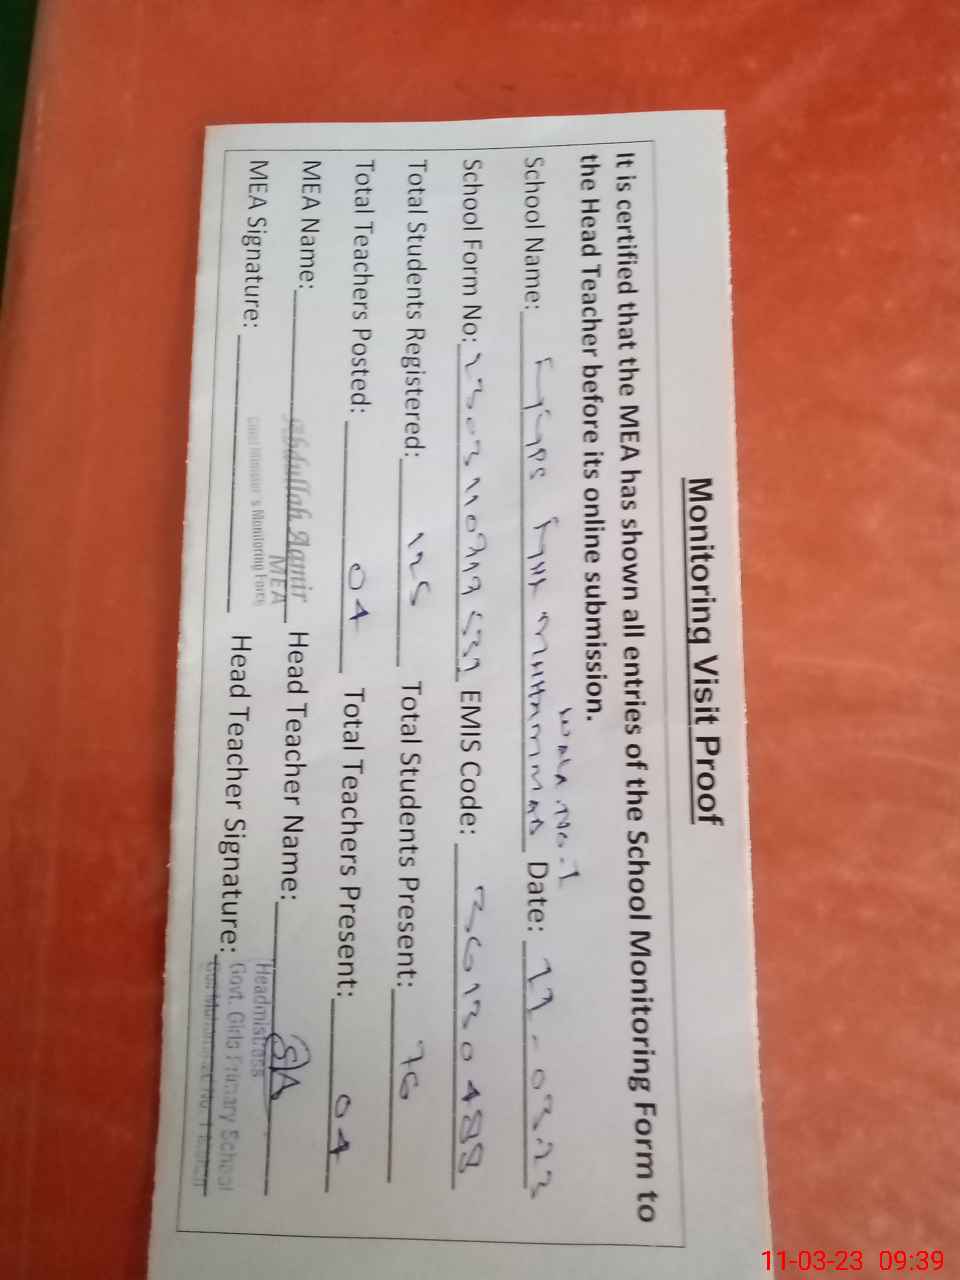 Monitoring Visit Proof
It is certified that the MEA has shown all entries of the School Monitoring Form to
the Head Teacher before its online submission.
WALA No.1
School Name: MUHAMMAD Date: 11-03-23
School Form No: EMIS Code: 36130489
Total Students Registered: 125 Total Students Present: 76
Total Teachers Posted: 04 Total Teachers Present: 04
MEA Name: Abdullah Aamir Head Teacher Name:
MEA
Chief Minister's Monitoring Force
Headmistress
MEA Signature: Head Teacher Signature: Govt. Girls Primary School
11-03-23 09:39